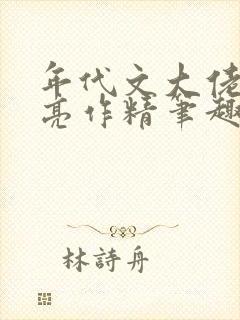 年代文大佬
亮作精笔趣
林詩舟